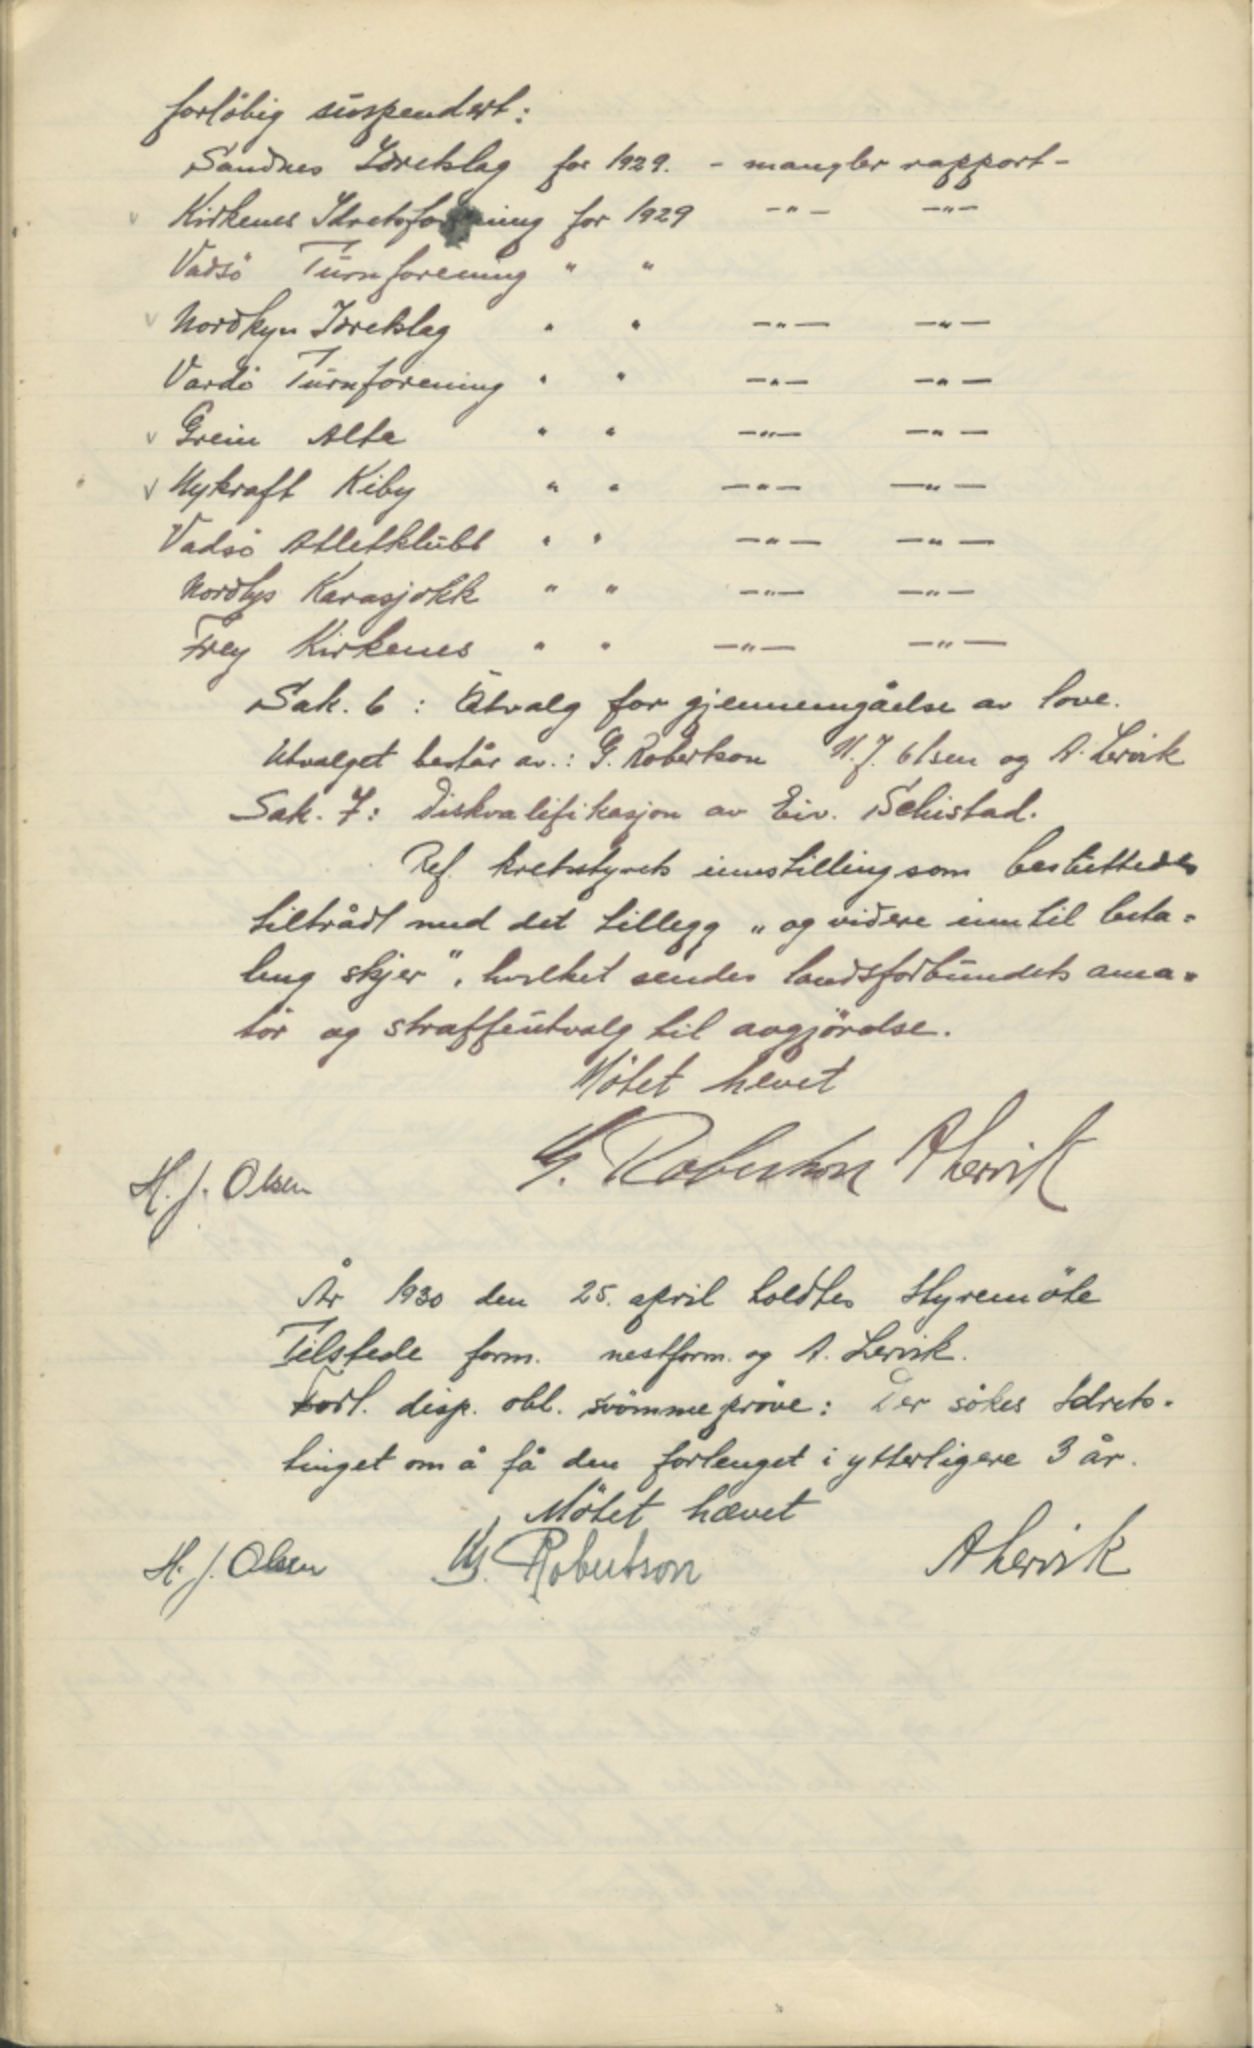 forlöbig suspendert:
Sandnes Idretslag for 1929. - mangler rapport -
v Kirkenes Idretsforening for 1929 -"- -"-
Vadsö Turnforening " "
v Nordkyn Idretslag " " -"- -"-
Vardö Turnforening " " -"- -"-
v Grein Alta " " -"- -"-
v Nykraft Kiby " " -"- -"-
Vadsö Atletklubb " " -"- -"-
Nordlys Karasjokk " " -"- -"-
Frey Kirkenes " " -"- -"-
Sak. 6 : Utvalg for gjennemgåelse av love.
Utvalget består av.: G. Robertson H. J. Olsen og A. Lervik
Sak. 7: Diskvalifikasjon av Eiv. Schistad.
Ref. kretsstyrets innstilling som besluttedes
tiltrådt med det tillegg „og videre inntil beta-
ling skjer", hvilket sendes landsforbundets ama-
tör og straffeutvalg til avgjörelse.
Mötet hevet
H. J. Olsen G. Robertson A Lervik
År 1930 den 25. april holdtes Styremöte
Tilstede form. nestform. og A. Lervik.
Forl. disp. obl. svömmepröve: Der sökes Idrets-
tinget om å få den forlenget i ytterligere 3 år.
Mötet hævet
H. J. Olsen G. Robertson A Lervik